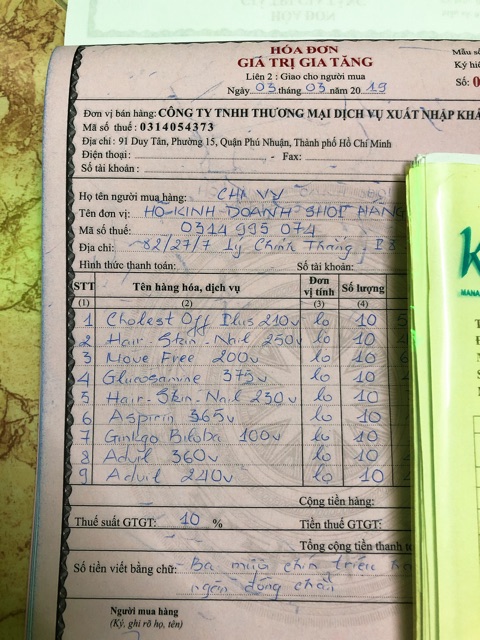 HÓA ĐƠN
GIÁ TRỊ GIA TĂNG
Mẫu số
Liên 2 : Giao cho người mua
Ký hiệ
Ngày 03 tháng 03 năm 2019
Số: 0
Đơn vị bán hàng: CÔNG TY TNHH THƯƠNG MẠI DỊCH VỤ XUẤT NHẬP KHẨ
Mã số thuế : 0314054373
Địa chỉ : 91 Duy Tân, Phường 15, Quận Phú Nhuận, Thành phố Hồ Chí Minh
Điện thoại: Fax:
Số tài khoản:
Họ tên người mua hàng: CHỊ VY
Tên đơn vị: HỘ KINH DOANH SHOP HÀNG
Mã số thuế: 0344 995 074
Địa chỉ: 82/27/7 Lý Chính Thắng, P8
Hình thức thanh toán: Số tài khoản:
STT Tên hàng hóa, dịch vụ Đơn vị tính Số lượng
(1) (2) (3) (4)
1 Cholest Off Plus 210v lo 10 5
2 Hair-Skin-Nail 250v lo 10 4
3 Move Free 200v lo 10 6
4 Glucosamine 375v lo 10
5 Hair-Skin-Nail 230v lo 10
6 Aspirin 365v lo 10
7 Ginkgo Biloba 100v lo 10
8 Advil 360v lo 10
9 Advil 240v lo 10
Cộng tiền hàng:
Thuế suất GTGT: 10 % Tiền thuế GTGT:
Tổng cộng tiền thanh to
Số tiền viết bằng chữ: Ba mươi chín triệu
ngàn đồng chẵn
Người mua hàng
(Ký, ghi rõ họ, tên)
K
MANA